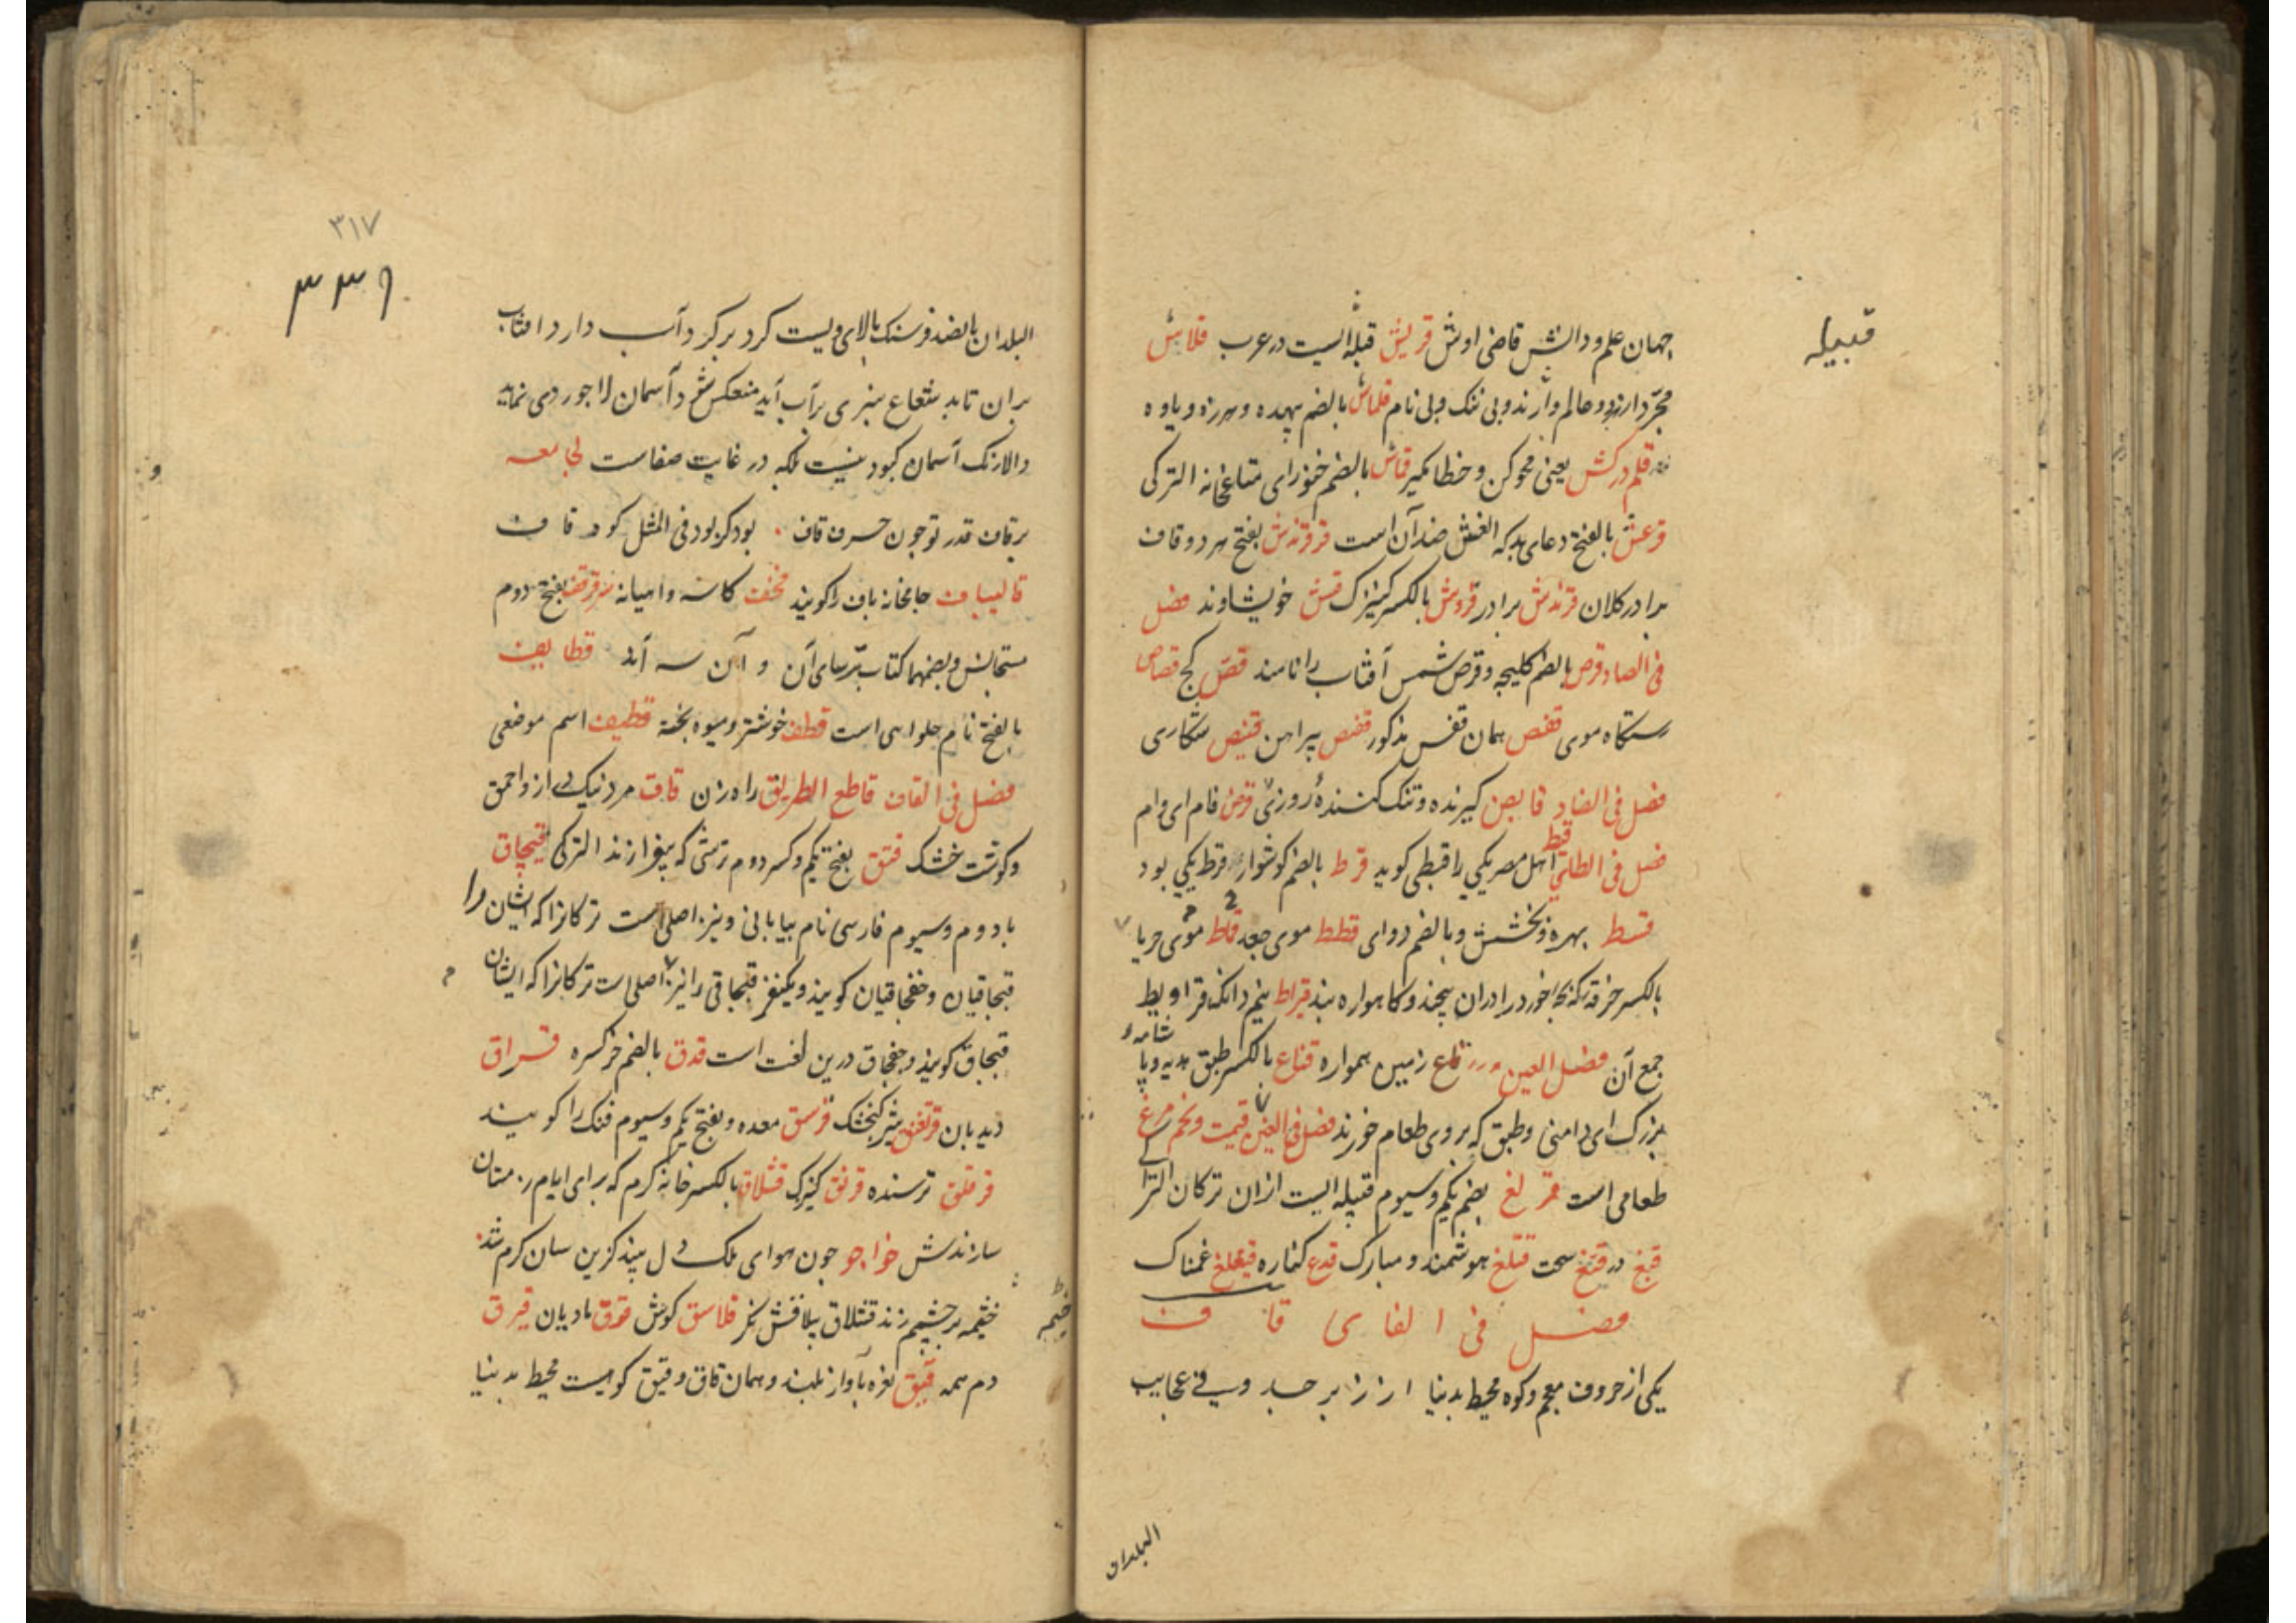 قبیله
جهان علم و دانش قاضی اوش قریش قبلهٔ ایست در عرب قلاش
مجرّد از دو عالم وارند و بی ننک و بی نام قلماش بالضم بیهده و هرزه و یاوه
قلم درکش یعنی محو کن و خطا مکیر قماش بالضم خنوز ای متاع خانه الترکی
قرعش بالفتح دعای بد که الغش ضد آن است قرقندش بفتح هر دو قاف
برادر کلان قرندش برادر قروش بالکسر کنیزک قش خویشاوند فصل
فی الصاد قرص بالضم کلیچه و قرص شمس آفتاب را نامند قصّ کچ قصاص
رستکاه موی قفص همان قفس مذکور قمص پیراهن قنیص شکاری
فصل فی الضاد قابض کیرنده و تنک کنندهٔ روزی قرض فام ای وام
قبط
فصل فی الطا اهل مصر یکی را قبطی کوید قرط بالضم کوشوار قرط یکی بود
قسط بهره و بخشش و بالضم دوای قطط موی جعد قماط موی حریا
بالکسر خرقه که بچه خورد را دران پیچند و کاهواره بند قیراط نیم دانک قراریط
شامهٔ
جمع آن فصل العین قاع زمین هموار قناع بالکسر طبق هدیه و پا
بزرک ای دامنی و طبق که بر وی طعام خورند فصل فی الغین قیمت و تخم مرغ
طعامی است قرلغ بضم یکم و سیوم قبیله ایست ازان ترکان الترا
قبغ در قتغ سخت قتلغ هوشمند و مبارک قدغ کناره قیغلغ غمناک
فصل فی الفای قاف
یکی از حروف معجم و کوه محیط بدنیا از زبرجد وی فی عجایب
البلدان
۳۱۷
۳۳۶
البلدان پانصد فرسنک بالای ویست کرد بر کرد آب دارد افتاب
بران تابد شعاع سبزی بر آب آید منعکس شود آسمان لاجوردی نماید
والا رنک آسمان کبود نیست بلکه در غایت صفاست لجامعه
برقاف قدر تو چون حرف قاف . بود کر بود فی المثل کوه قاف
قالیباف جامخانه باف را کویند قحف کاسه و امیانه سر قرقف بفتح دوم
متجانس و بضمهما کتاب ترسایان و آن سه اند قطایف
بالفتح نام حلواءی است قطف خوشتر و میوه پخته قطیف اسم موضعی
فصل فی القاف قاطع الطریق راه زن قاق مرد نیک دراز و احمق
و کوشت خشک قتق بفتح یکم و کسر دوم ترشی که بپزارند الترکی قپچاق
با دوم و سیوم فارسی نام بیابانی و نیز اصلی است ترکانرا که ایشان را
قبچاقیان و خفچاقیان کویند و یکنفر قبچاقی را نیز اصلی است ترکانرا که ایشان
قبچاق کویند و خفچاق درین لغت است قدق بالضم خر کره قراق
دیدبان قرتغن شیر کنجشک قرسق معده و بفتح یکم و سیوم فنک را کویند
قرقلق ترسنده قرنق کنیزک قشلاق بالکسر خانه کرم که برای ایام زمستان
سازندش خواجو چون هوای ملک دل بیند کزین سان کرم شد
خیمه بر چشمم زند قشلاق ییلاقش نکر قلاسق کوش قوق مادیان قیرق
خیمه
دم همه قیق نعره باواز بلند و همان قاق و قیق کوهیست محیط بدنیا